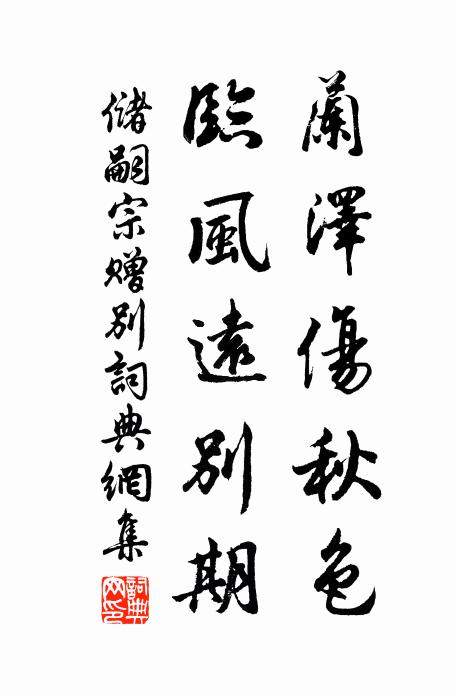 蘭澤傷秋色
臨風遠別期
儲嗣宗贈別詞典網集
詞典網印